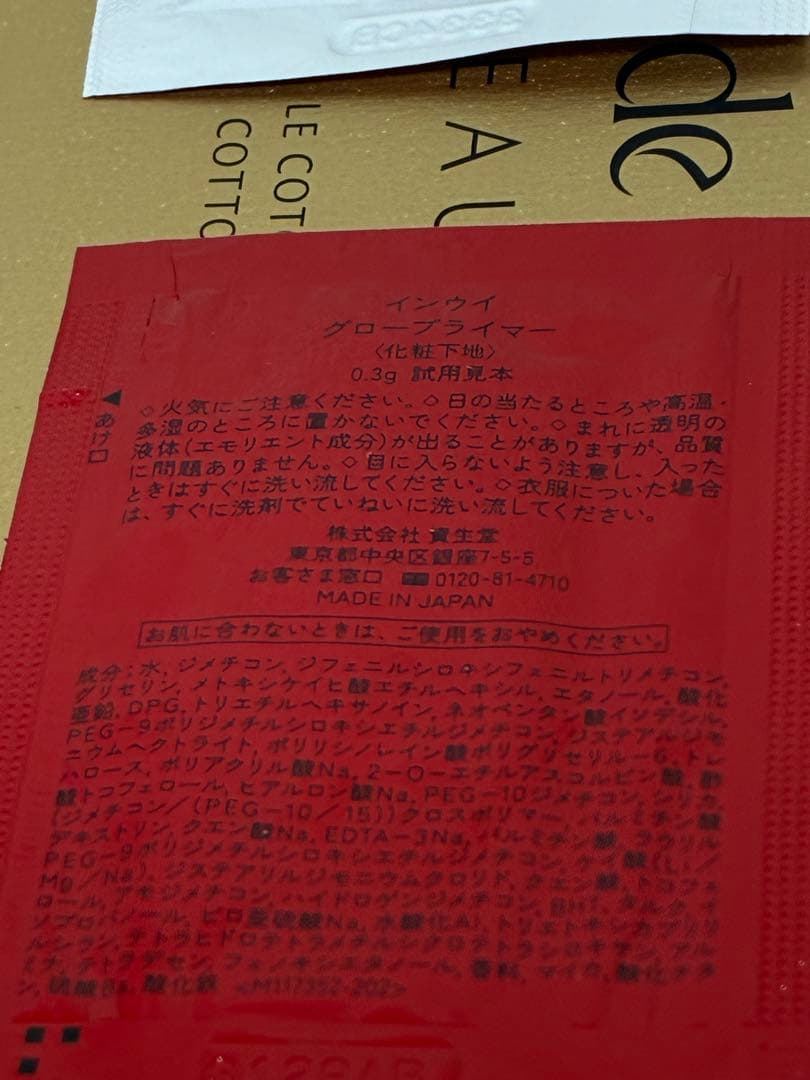 de
EAU
LE COT
COTTO
インウイ
グロープライマー
〈化粧下地〉
0.3g 試用見本
あけ口
◇火気にご注意ください。◇日の当たるところや高温・
多湿のところに置かないでください。◇まれに透明の
液体(エモリエント成分)が出ることがありますが、品質
に問題ありません。◇目に入らないよう注意し、入った
ときはすぐに洗い流してください。◇衣服についた場合
は、すぐに洗剤でていねいに洗い流してください。
株式会社 資生堂
東京都中央区銀座7-5-5
お客さま窓口 0120-81-4710
MADE IN JAPAN
お肌に合わないときは、ご使用をおやめください。
成分:水, ジメチコン, ジフェニルシロキシフェニルトリメチコン,
グリセリン, メトキシケイヒ酸エチルヘキシル, エタノール, 酸化
亜鉛, DPG, トリエチルヘキサノイン, ネオペンタン酸イソデシル,
PEG-9ポリジメチルシロキシエチルジメチコン, ジステアルジモ
ニウムヘクトライト, ポリリシノレイン酸ポリグリセリル-6, トレ
ハロース, ポリアクリル酸Na, 2-O-エチルアスコルビン酸, 酢
酸トコフェロール, ヒアルロン酸Na, PEG-10ジメチコン, シリカ,
(ジメチコン/(PEG-10/15))クロスポリマー, パルミチン酸
デキストリン, クエン酸Na, EDTA-3Na, パルミチン酸, ラウリル
PEG-9ポリジメチルシロキシエチルジメチコン, ケイ酸(Li/
Mg/Na), ジステアリルジモニウムクロリド, クエン酸, トコフェ
ロール, アモジメチコン, ハイドロゲンジメチコン, BHT, タルク, イ
ソプロパノール, ピロ亜硫酸Na, 水酸化Al, トリエトキシカプリリ
ルシラン, テトラヒドロテトラメチルシクロテトラシロキサン, アル
ミナ, テトラデセン, フェノキシエタノール, 香料, マイカ, 酸化チタ
ン, 硫酸Ba, 酸化鉄 <M117352-202>